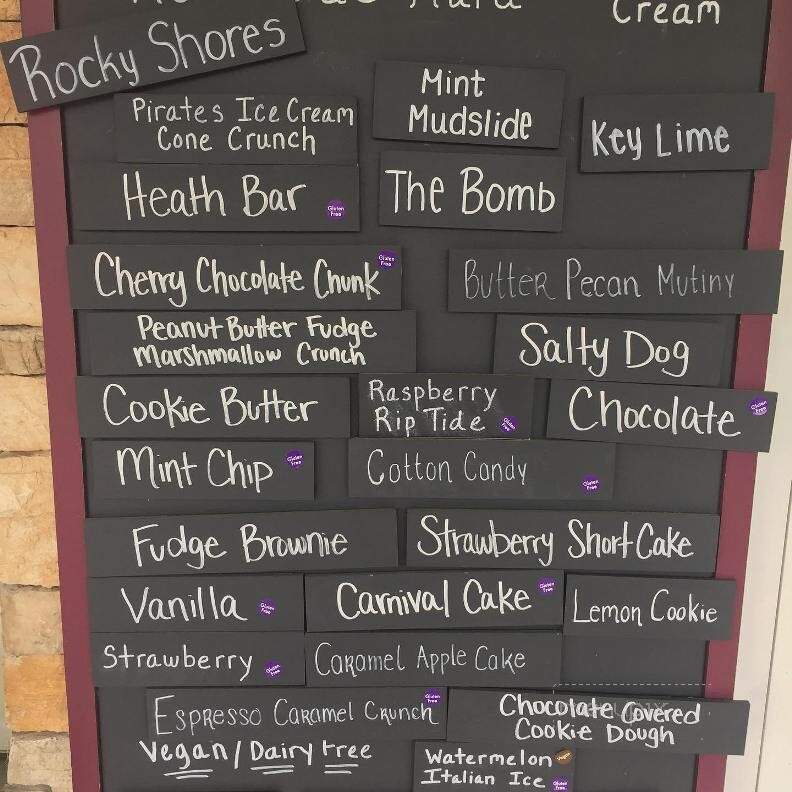 Cream
Rocky Shores
Pirates Ice Cream
Cone Crunch
Mint
Mudslide
Key Lime
Heath Bar
Gluten
Free
The Bomb
Cherry Chocolate Chunk
Gluten
Free
Butter Pecan Mutiny
Peanut Butter Fudge
Marshmallow Crunch
Salty Dog
Cookie Butter
Raspberry
Rip Tide
Gluten
Free
Chocolate
Gluten
Free
Mint Chip
Gluten
Free
Cotton Candy
Gluten
Free
Fudge Brownie
Strawberry Short Cake
Vanilla
Gluten
Free
Carnival Cake
Gluten
Free
Lemon Cookie
Strawberry
Gluten
Free
Caramel Apple Cake
Espresso Caramel Crunch
Gluten
Free
Chocolate Covered
Cookie Dough
Vegan/Dairy Free
Watermelon
Vegan
Italian Ice
Gluten
Free